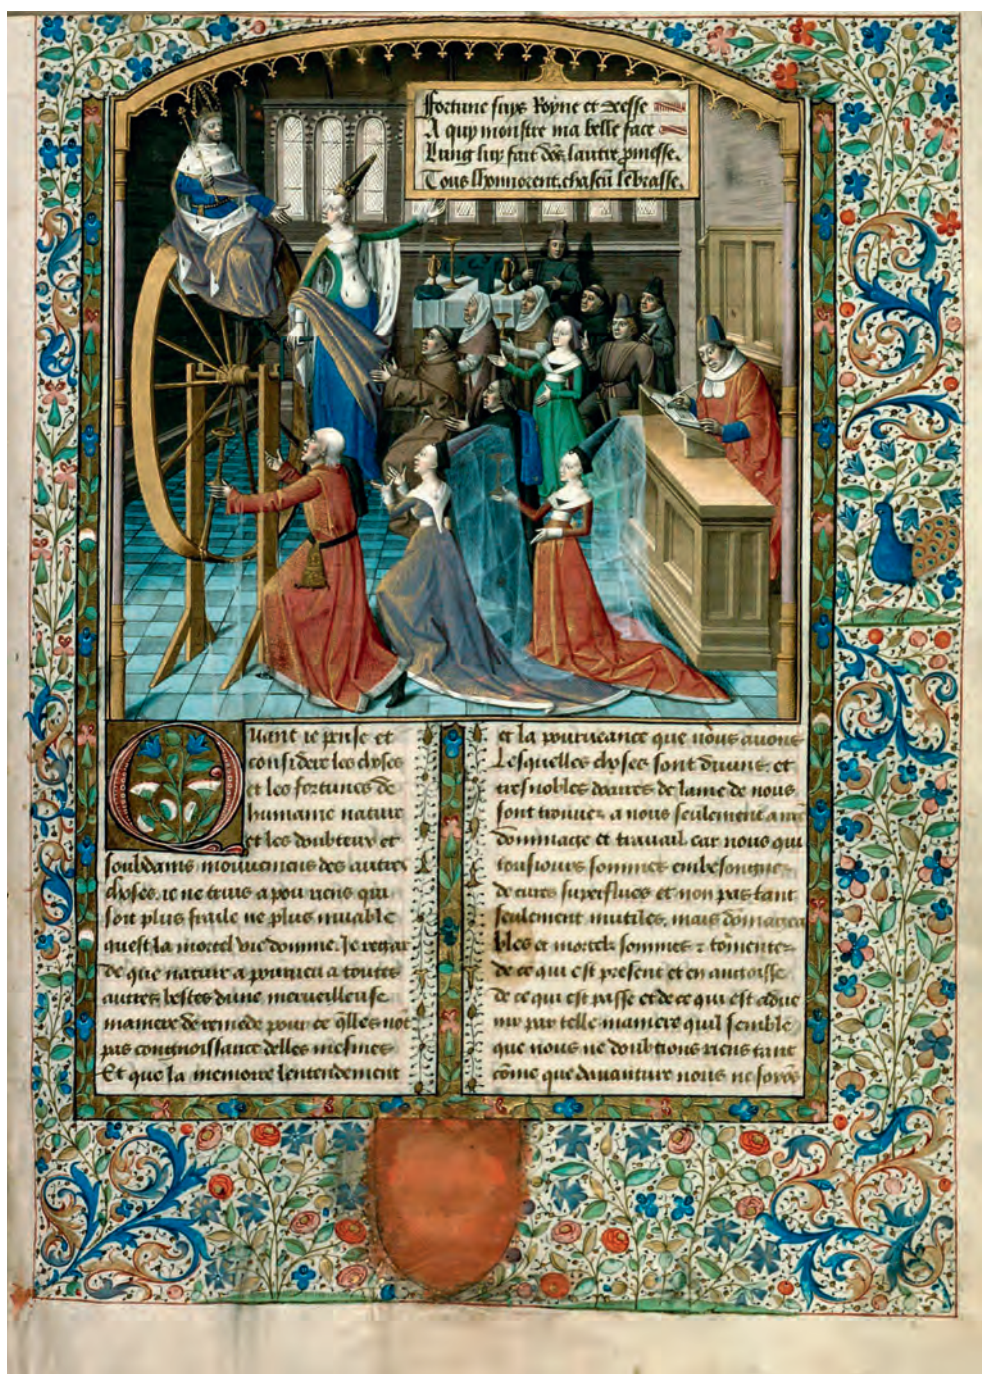 Fortune suys Royne et deesse
A quy monstre ma belle face
Lung luy fait dõs lautre pmesse.
Tous lhonnorent. chascũ lebrasse.
Quant ie pense et
considere les choses
et les fortunes de
humaine nature
et les doubteux et
soubdains mouuemens des autres
choses. ie ne truis a pou riens qui
soit plus fraile ne plus muable
quest la mortel vie domme. Je regar
de que nature a pourueu a toutes
autres bestes dune merueilleuse
maniere de remede pour ce q̃lles not
pas congnoissance delles mesmes
Et que la memoire lentendement
et la pourueance que nous auons
Lesquelles choses sont diuins. et
tresnobles dounes de lame de nous
sont trouuez a nous seulement a nr̃e
dommage et trauail car nous qui
tousiours sommes embesongnez
de cures superflues et non pas tant
seulement inutiles. mais dõmagea
bles et mortelz sommes z tõmentez
de ce qui est present et en angoisse
de ce qui est passe et de ce qui est adue
nir par telle maniere quil semble
que nous ne doubtions riens tant
cõme que dauanture nous ne soyõs